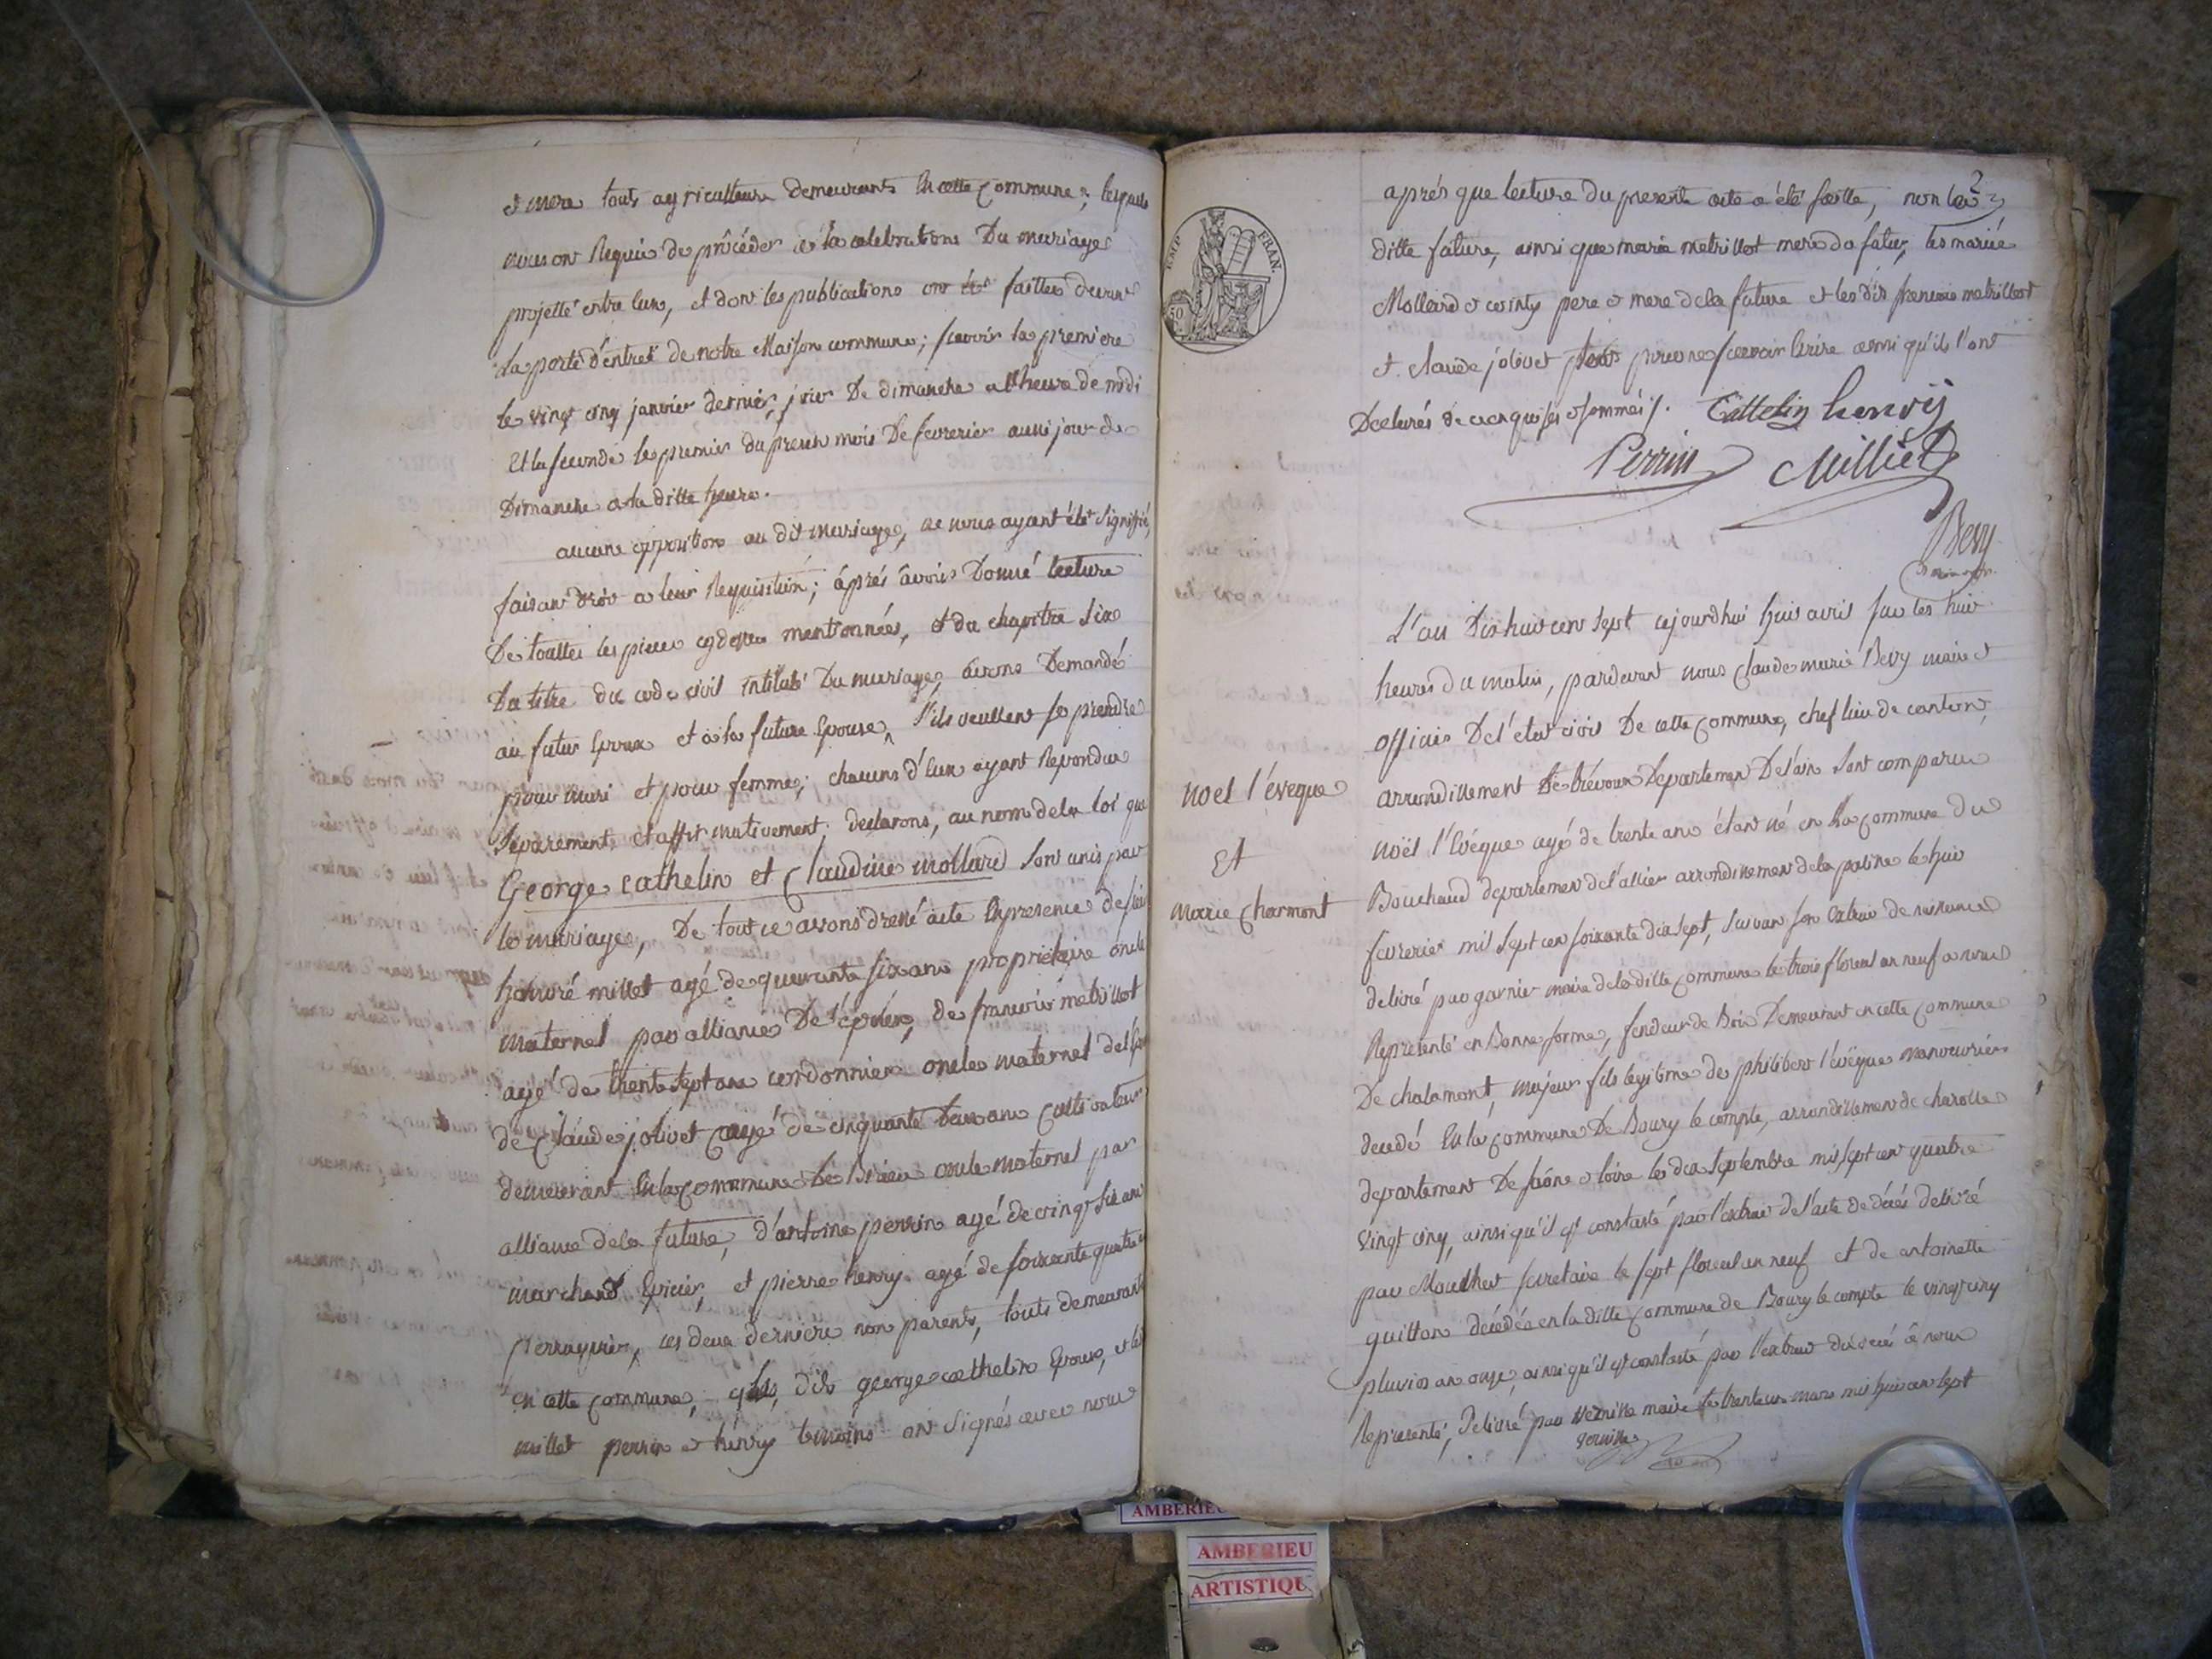 et mere tous agriculteurs demeurants en cette Commune; lesquels
nous ont Requis de procéder a la celebrations Du mariage
projetté entre Eux, et dont les publications ont été faittes devant
la porte d'entreé de notre Maison commune; scavoir la premiere
le vingt cinq janvier dernier, jour De dimanche a l'heure de midi
Et la seconde le premier du present mois De fevrerier aussi jour de
Dimanche a la ditte heure.
aucune opposition au dit mariage, ne nous ayant été Signiffié,
faisant droit a leur Requisition; âprés âvoir Donné lecture
De touttes les pieces cydessus mentionnées, et du chapitre Six
Du titre du code civil intitulé Du mariage, avons Demandé
au futur Epoux et a la future Epouse, s'ils veullent se prendre
pour mari et pour femme; chacuns d'Eux ayant Repondu
Separement et affirmativement; declarons, au nom de la loi que
George cathelin et Claudine mollard Sont unis par
le mariage, De tout ce avons dressé acte En presence de
honoré millet agé de quarante six ans propriétaire oncle
maternel par alliance De l'époux, de francois metrillot
agé de trente sept ans cordonnier oncle maternel de
de Claude jolivet agé de cinquante deux ans Cultivateur
demeurant En la Commune De oncle maternel par
alliance dela future, d'antoine perrin agé de cinqt Six ans
marchand Epicier, et pierre henry agé de soixante quatre
perruquier, ces deux derniers non parents, touts demeurants
en cette Commune, dits george cathelin Epoux, et les
millet perrin et henry temoins ont Signés avec nous
aprés que lecture du present acte a été faitte, non la
ditte future, ainsi que marie metrillot mere du futur, les mariés
Mollard et cointy pere et mere dela future et les dits francois metrillot
et Claude jolivet pour ne scavoir Ecrire ainsi qu'ils l'ont
Declarés de ce enquis et sommés /. Cattelin henrÿ
Perrin Milliet
Bevy
L'an Dix huit cent sept cejourdhui huit avril sur les huit
heures du matin, pardevant nous Claude marie Bevy maire et
officier De l'état civil De cette Commune, chef lieu de canton,
noel l'éveque
arrondissement De trévoux Departement De l'ain Sont comparu
noël l'évêque agé de trente ans étant né en la Commune du
Et
Bouchaud departement de l'allier arrondissement dela palisse le huit
marie Charmont
fevrerier mil sept cent soixante dix sept, suivant son Extrait de naissance
delivré par garnier maire dela ditte Commune le trois floreal an neuf a nous
Representé en Bonne forme, fendeur de Bois Demeurant en cette Commune
De chalamont, majeur fils legitime de philibert l'évêque manoeuvrier
decedé En la Commune De Boury le compte, arrondissement de charolle
departement De saône et loire le dix septembre mil sept cent quatre
vingt cinq, ainsi qu'il est constaté par l'extrait de l'acte de décés delivré
par secretaire le sept floreal an neuf et de antoinette
guitton decédée en la ditte Commune de Boury le compte le vingt cinq
pluvios an onze, ainsi qu'il est constaté par l'extrait du décés â nous
Representé, Delivré par maire le trente un mars mil huit cent sept
EMP
FRAN.
50
AMBERIEU
AMBERIEU
ARTISTIQU